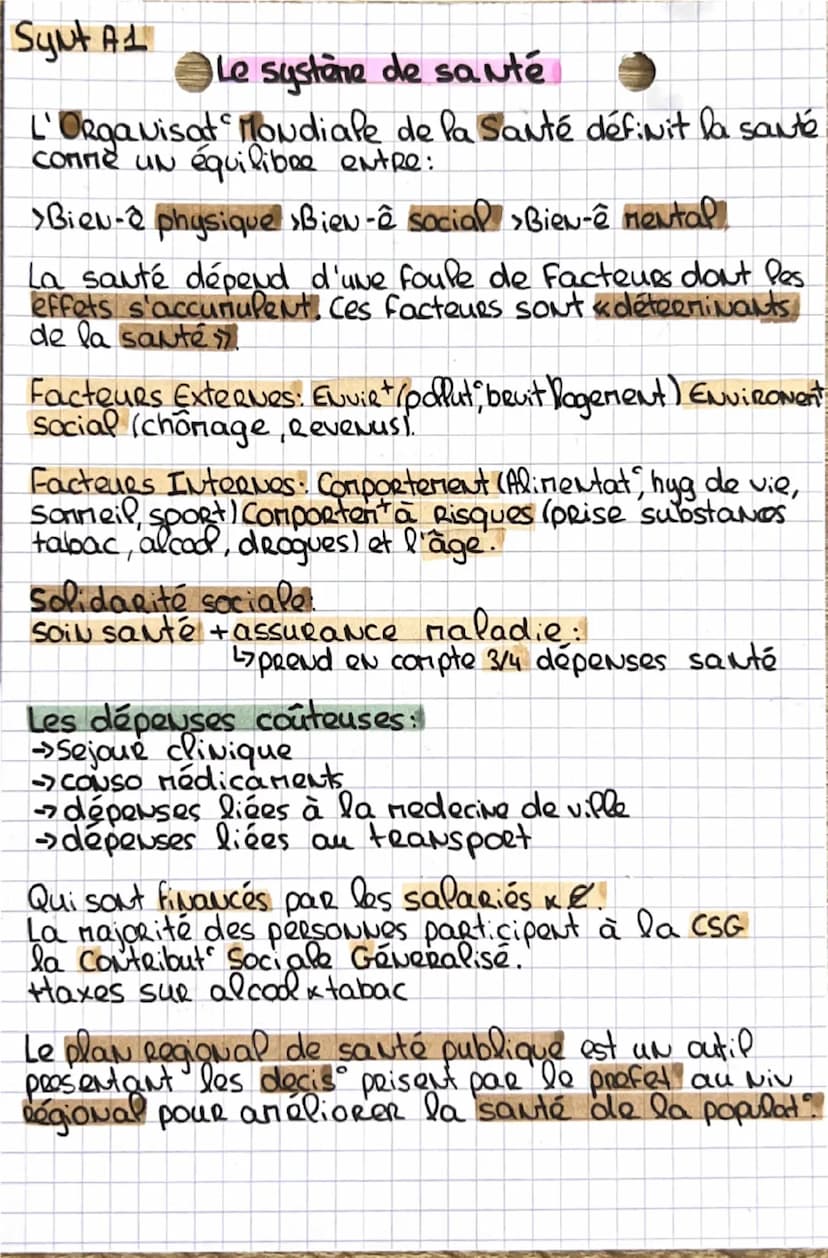 Synt A1
Le système de santé
L'Organisat° Mondiale de la Santé définit la santé
comme un équilibre entre:
>Bien-ê physique >Bien-ê social >Bien-ê mental
La santé dépend d'une foule de facteurs dont les
effets s'accumulent. Ces facteurs sont «déterminants
de la santé».
Facteurs Externes: Envirt (pollut°, bruit logement) Environent
social (chômage, revenus).
Facteurs Internes: Comportement (Alimentat°, hyg de vie,
sommeil, sport) Comportent à risques (prise substances
tabac, alcool, drogues) et l'âge.
Solidarité sociale:
soin santé + assurance maladie:
↳prend en compte 3/4 dépenses santé
Les dépenses coûteuses:
→Sejour clinique
→conso médicaments
→dépenses liées à la medecine de ville
→dépenses liées au transport
Qui sont financés par les salariés x €.
La majorité des personnes participent à la CSG
la Contribut° Sociale Généralisé.
+taxes sur alcool x tabac
Le plan regional de santé publique est un outil
presentant les decis° prisent par le prefet au niv
régional pour améliorer la santé de la populat°.